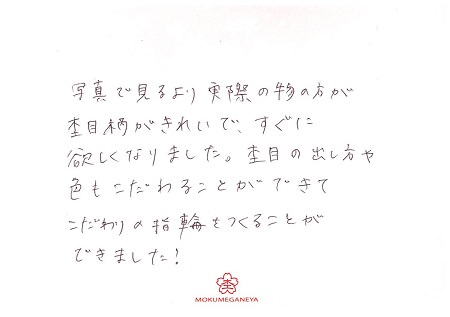 写真で見るより実際の物の方が
杢目柄がきれいで、すぐに
欲しくなりました。杢目の出し方や
色もこだわることができて
こだわりの指輪をつくることが
できました!
杢
MOKUMEGANEYA